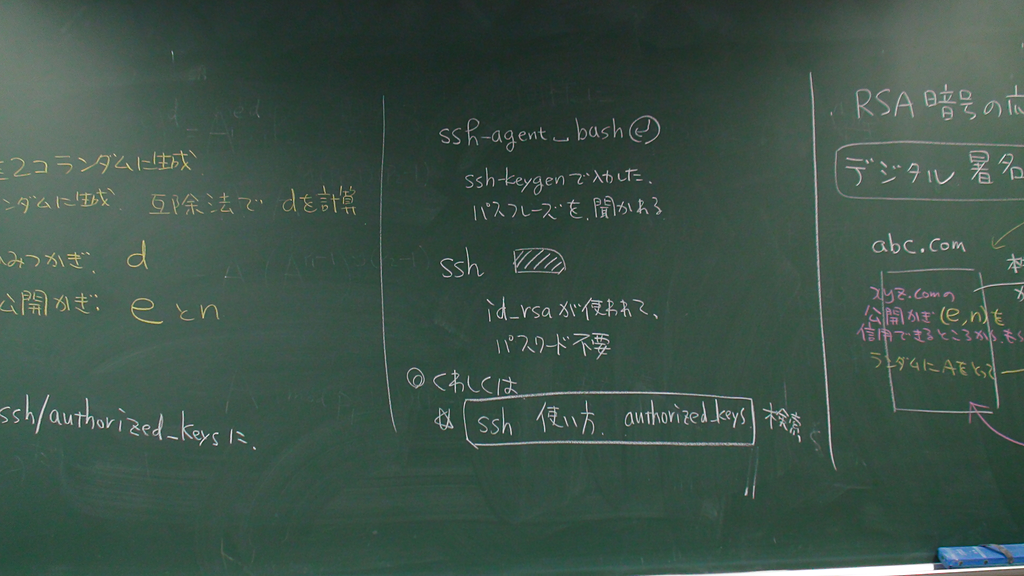 を2コランダムに生成
ンダムに生成. 互除法で dを計算
みつかぎ. d
公開かぎ: e と n
ssh/authorized_keys に.
ssh-agent bash
ssh-keygenで入力した.
パスフレーズを聞かれる
ssh
id_rsa が使われて.
パスワード不要
くわしくは
ssh 使い方. authorized_keys 検索
RSA 暗号の
デジタル 署名
abc.com
xyz.comの
公開かぎ(e,n)を
信用できるところから
ランダムにAをとって